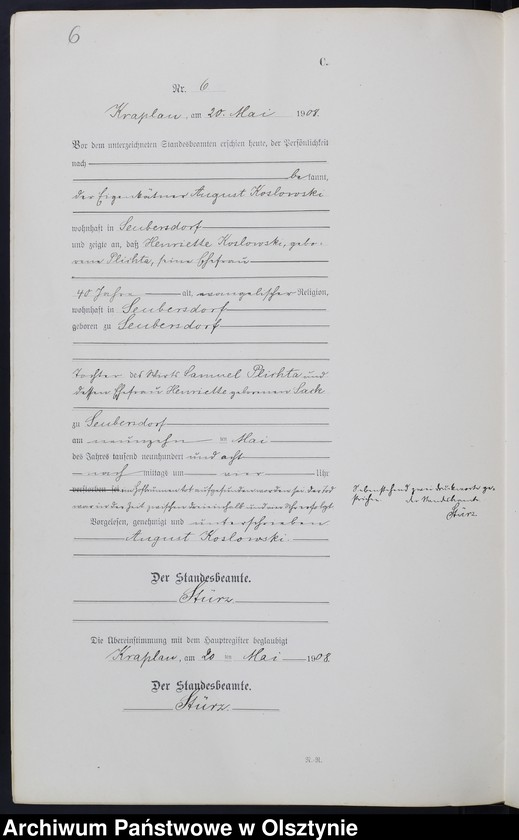 6
C.
Nr. 6
Kraplau, am 20. Mai 1908.
Vor dem unterzeichneten Standesbeamten erschien heute, der Persönlichkeit
nach
bekannt,
der Eigenkätner August Koslowski
wohnhaft in Seubersdorf
und zeigte an, daß Henriette Koslowski, gebo-
rene Plichta, seine Ehefrau
40 Jahre alt, evangelischer Religion,
wohnhaft in Seubersdorf
geboren zu Seubersdorf
Tochter des Samuel Plichta und
dessen Ehefrau Henriette geborenen Sack
zu Seubersdorf
am neunzehn ten Mai
des Jahres tausend neunhundert und acht
nach mittags um vier Uhr
verstorben sei aufgefunden worden sei der Tod
Vorgelesen, genehmigt und unterschrieben
August Koslowski.
Nebenstehend zwei Druckworte ge-
strichen. Der Standesbeamte
Stürz
Der Standesbeamte.
Stürz
Die Übereinstimmung mit dem Hauptregister beglaubigt
Kraplau, am 20 ten Mai 1908.
Der Standesbeamte.
Stürz.
Archiwum Państwowe w Olsztynie